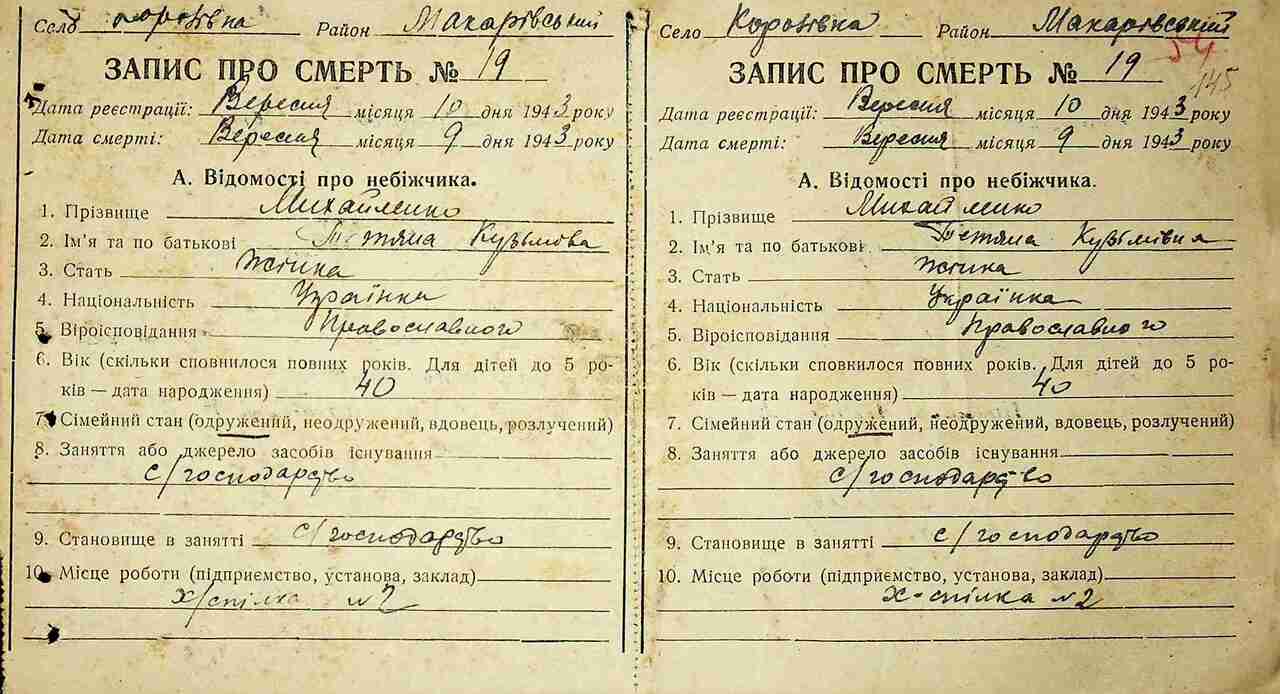 Село Королівка Район Макарівський
ЗАПИС ПРО СМЕРТЬ № 19
Дата реєстрації: Вересня місяця 10 дня 1943 року
Дата смерті: Вересня місяця 9 дня 1943 року
А. Відомості про небіжчика.
1. Прізвище Михайленко
2. Ім'я та по батькові Тетяна Кузьмова
3. Стать Жінка
4. Національність Українка
5. Віроісповідання Православного
6. Вік (скільки сповнилося повних років. Для дітей до 5 ро-
ків — дата народження) 40
7. Сімейний стан (одружений, неодружений, вдовець, розлучений)
8. Заняття або джерело засобів існування
с/господарство
9. Становище в занятті с/господарство
10. Місце роботи (підприємство, установа, заклад)
х/спілка №2
Село Королівка Район Макарівський
54
ЗАПИС ПРО СМЕРТЬ № 19
145
Дата реєстрації: Вересня місяця 10 дня 1943 року
Дата смерті: Вересня місяця 9 дня 1943 року
А. Відомості про небіжчика.
1. Прізвище Михайленко
2. Ім'я та по батькові Тетяна Кузьмівна
3. Стать Жінка
4. Національність Українка
5. Віроісповідання Православного
6. Вік (скільки сповнилося повних років. Для дітей до 5 ро-
ків — дата народження) 40
7. Сімейний стан (одружений, неодружений, вдовець, розлучений)
8. Заняття або джерело засобів існування
с/господарство
9. Становище в занятті с/господарство
10. Місце роботи (підприємство, установа, заклад)
х-спілка №2